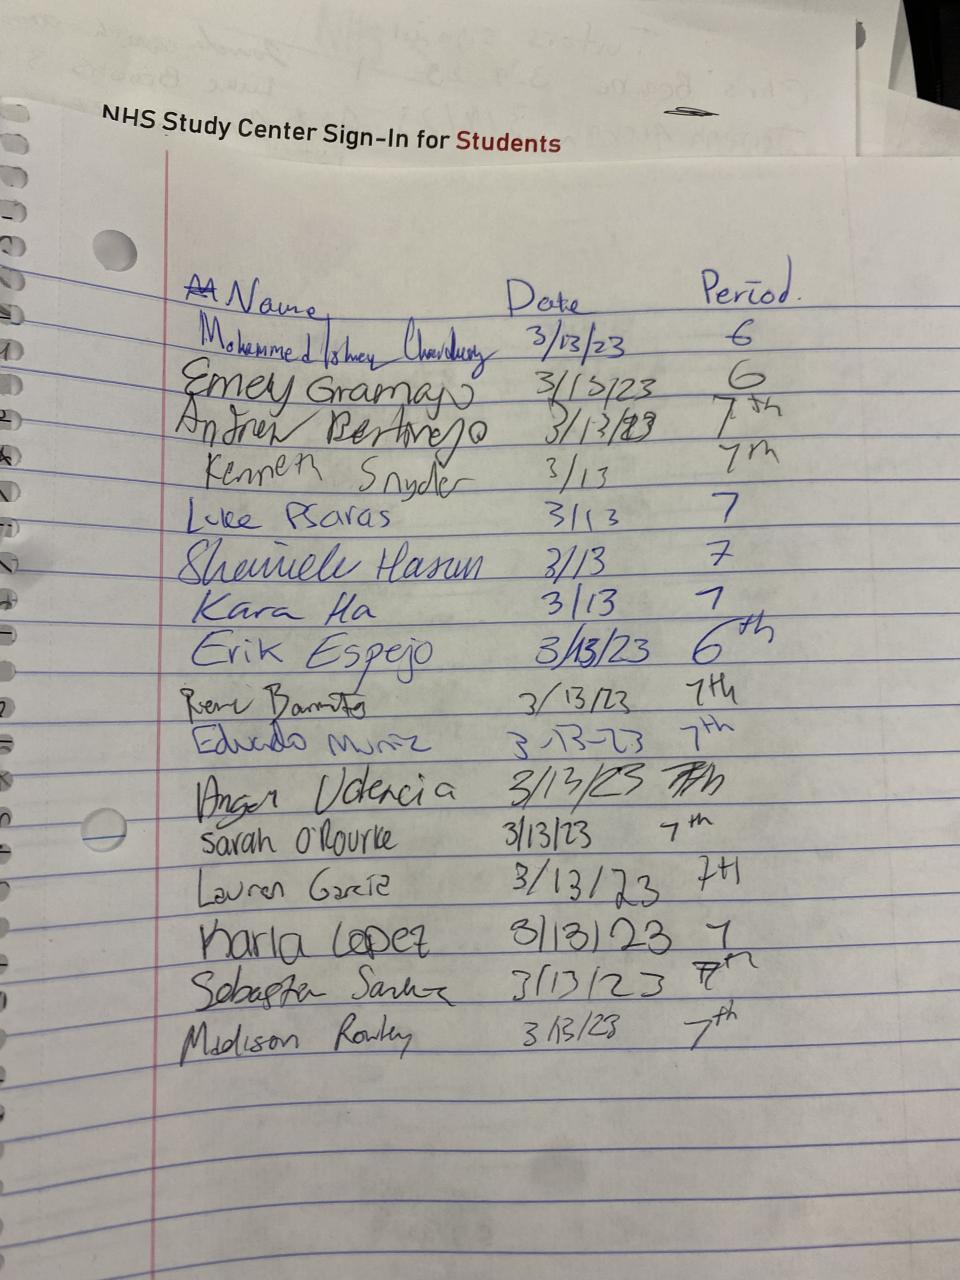 NHS Study Center Sign-In for Students
Name Date Period.
Mohammed Chowdhury 3/13/23 6
Emey Gramajo 3/13/23 6
Andrew Bertorejo 3/13/23 7th
Kenneth Snyder 3/13 7th
Luke Psaras 3/13 7
Hasan 3/13 7
Kara Ha 3/13 7
Erik Espejo 3/13/23 6th
3/13/23 7th
Eduardo Muniz 3-13-23 7th
Angel Valencia 3/13/23 7th
Sarah O'Rourke 3/13/23 7th
Lauren Garcia 3/13/23 7th
Karla Lopez 3/13/23 7
Sebastian 3/13/23 7th
Madison Rowley 3/13/23 7th